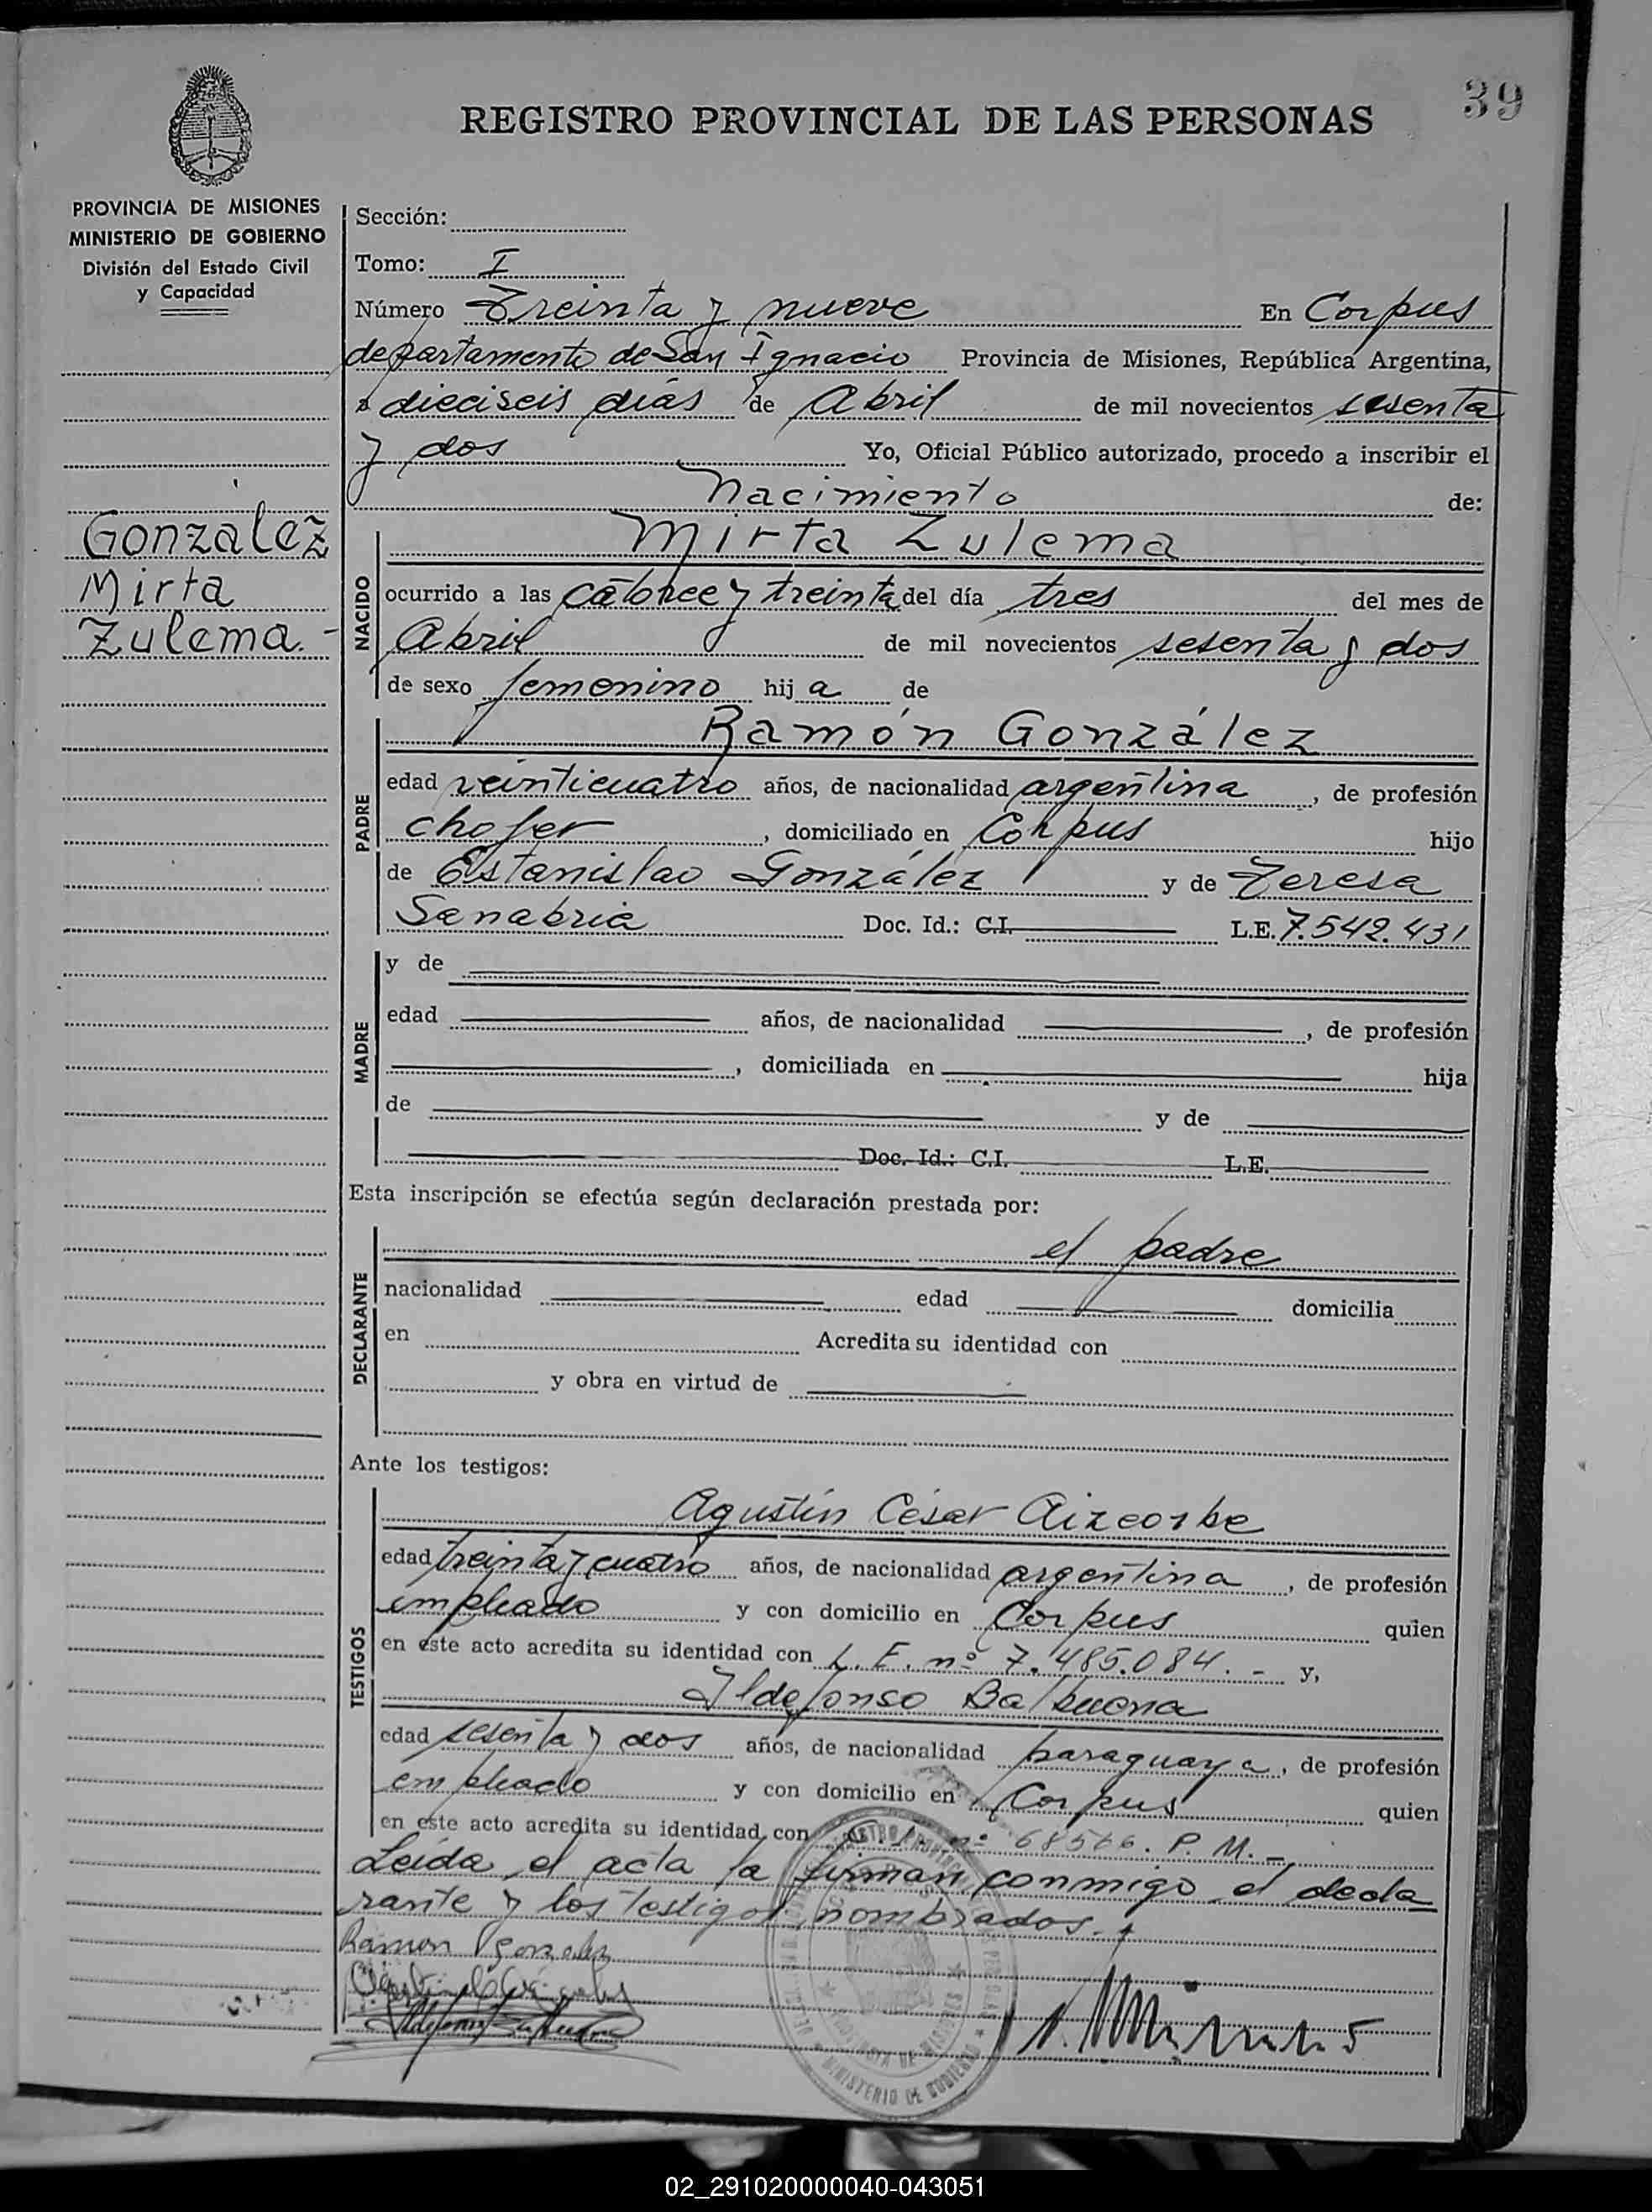 39
REGISTRO PROVINCIAL DE LAS PERSONAS
PROVINCIA DE MISIONES
MINISTERIO DE GOBIERNO
División del Estado Civil
y Capacidad
Gonzalez
Mirta
Zulema.-
Sección:
Tomo: I
Número Treinta y nueve En Corpus
departamento de San Ignacio Provincia de Misiones, República Argentina,
a dieciseis días de Abril de mil novecientos sesenta
y dos Yo, Oficial Público autorizado, procedo a inscribir el
Nacimiento de:
Mirta Zulema
NACIDO
ocurrido a las catorce y treinta del día tres del mes de
Abril de mil novecientos sesenta y dos
de sexo femenino hija de
Ramón González
PADRE
edad veinticuatro años, de nacionalidad argentina, de profesión
chofer, domiciliado en Corpus hijo
de Estanislao González y de Teresa
Sanabria Doc. Id.: C.I. L.E. 7.542.431
MADRE
y de
edad años, de nacionalidad , de profesión
, domiciliada en hija
de y de
Doc. Id.: C.I. L.E.
Esta inscripción se efectúa según declaración prestada por:
DECLARANTE
el padre
nacionalidad edad domicilia
en Acredita su identidad con
y obra en virtud de
Ante los testigos:
TESTIGOS
Agustín César Aizcorbe
edad treinta y cuatro años, de nacionalidad argentina, de profesión
empleado y con domicilio en Corpus quien
en este acto acredita su identidad con L.E. nº 7.485.084.- y,
Ildefonso Balbuena
edad sesenta y dos años, de nacionalidad paraguaya, de profesión
empleado y con domicilio en Corpus quien
en este acto acredita su identidad con C.I. nº 68566. P.M.-
Leída el acta la firman conmigo el decla
rante y los testigos nombrados.
Ramon Gonzalez
MINISTERIO DE GOBIERNO
02_291020000040-043051